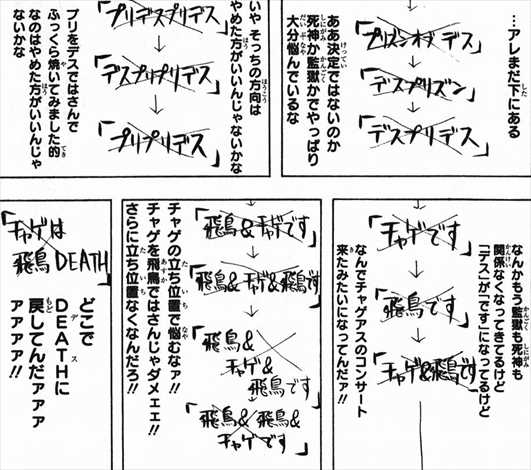 …アレまだ下にある
「プリズンオブデス」
↓
「デスプリズン」
↓
「デスプリデス」
ああ決定ではないのか
死神か監獄かでやっぱり
大分悩んでいるな
「プリデスプリデス」
↓
「デスプリプリデス」
↓
「プリプリデス」
いや そっちの方向は
やめた方がいいんじゃないかな
プリをデスではさんで
ふっくら焼いてみました的
なのはやめた方がいいんじゃ
ないかな
なんかもう監獄も死神も
関係なくなってきてるけど
「デス」が「です」になってるけど
「チャゲです」
↓
「飛鳥です」
↓
「チャゲ&飛鳥です」
なんでチャゲアスのコンサート
来たみたいになってんだァ!!
「飛鳥&チャゲです」
↓
「飛鳥&チャゲ&飛鳥です」
↓
「飛鳥&
チャゲ&
飛鳥です」
↓
「飛鳥&飛鳥&
チャゲです」
チャゲの立ち位置で悩むなァ!!
チャゲを飛鳥ではさんじゃダメェェ!!
さらに立ち位置なくなんだろ!!
「チャゲは
飛鳥DEATH」
どこで
DEATHに
戻してんだァァァ
ァァァァ!!